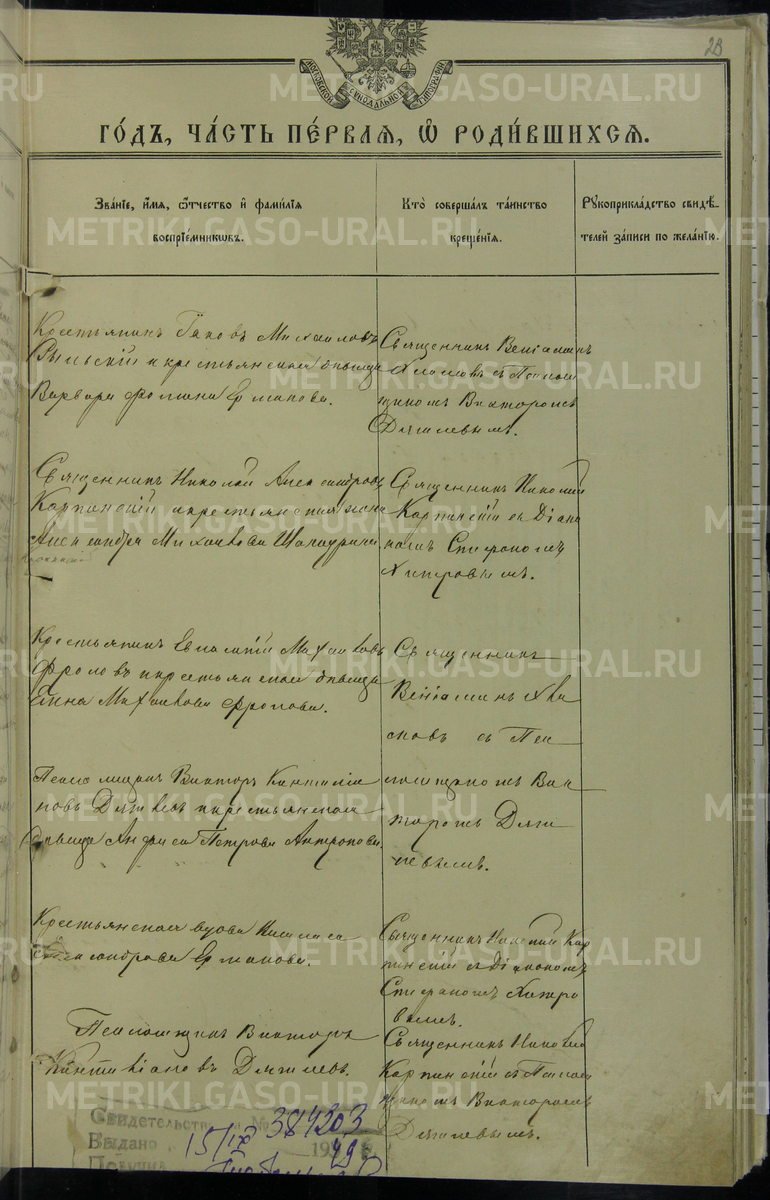 28
МОСКОВСКОЙ СѴНОДАЛЬНОЙ ТИПОГРАФІИ
METRIKI.GASO-URAL.RU
ГОДЪ, ЧАСТЬ ПЕРВАЯ, Ѡ РОДИВШИХСЯ.
Званіе, имя, ѻтчество и фамилія
воспріемниковъ.
Кто совершалъ таинство
крещенія.
Рукоприкладство свидѣ-
телей записи по желанію.
Крестьянинъ Іаковъ Михаиловъ
и крестьянская дѣвица
Варвара Ермакова.
Священникъ Веніаминъ
Хласовъ съ Псалом
щикомъ Викторомъ
Дягилевымъ.
Священникъ Николай Александровъ
Карпинскій и крестьянская жена
Александра Михаилова
Священникъ Николай
Карпинскій съ Діако
номъ Стефаномъ
Хитровымъ.
Крестьянинъ Михаиловъ
Фроловъ и крестьянская дѣвица
Анна Михаилова Фролова.
Священникъ
Веніаминъ Хла
совъ съ Пса
ломщикомъ Вик
торомъ Дяги
левымъ.
Псаломщикъ Викторъ Квинтиліа
новъ Дягилевъ и крестьянская
дѣвица Анфиса Петрова Антропова.
Крестьянская вдова
Александрова Ермакова.
Священникъ Николай Кар
пинскій съ Діакономъ
Стефаномъ Хитро
вымъ.
Псаломщикъ Викторъ
Дягилевъ.
Священникъ Николай
Карпинскій съ Псалом
щикомъ Викторомъ
Дягилевымъ.
Свидетельство № 384203
Выдано 15/IX 1949
Получил